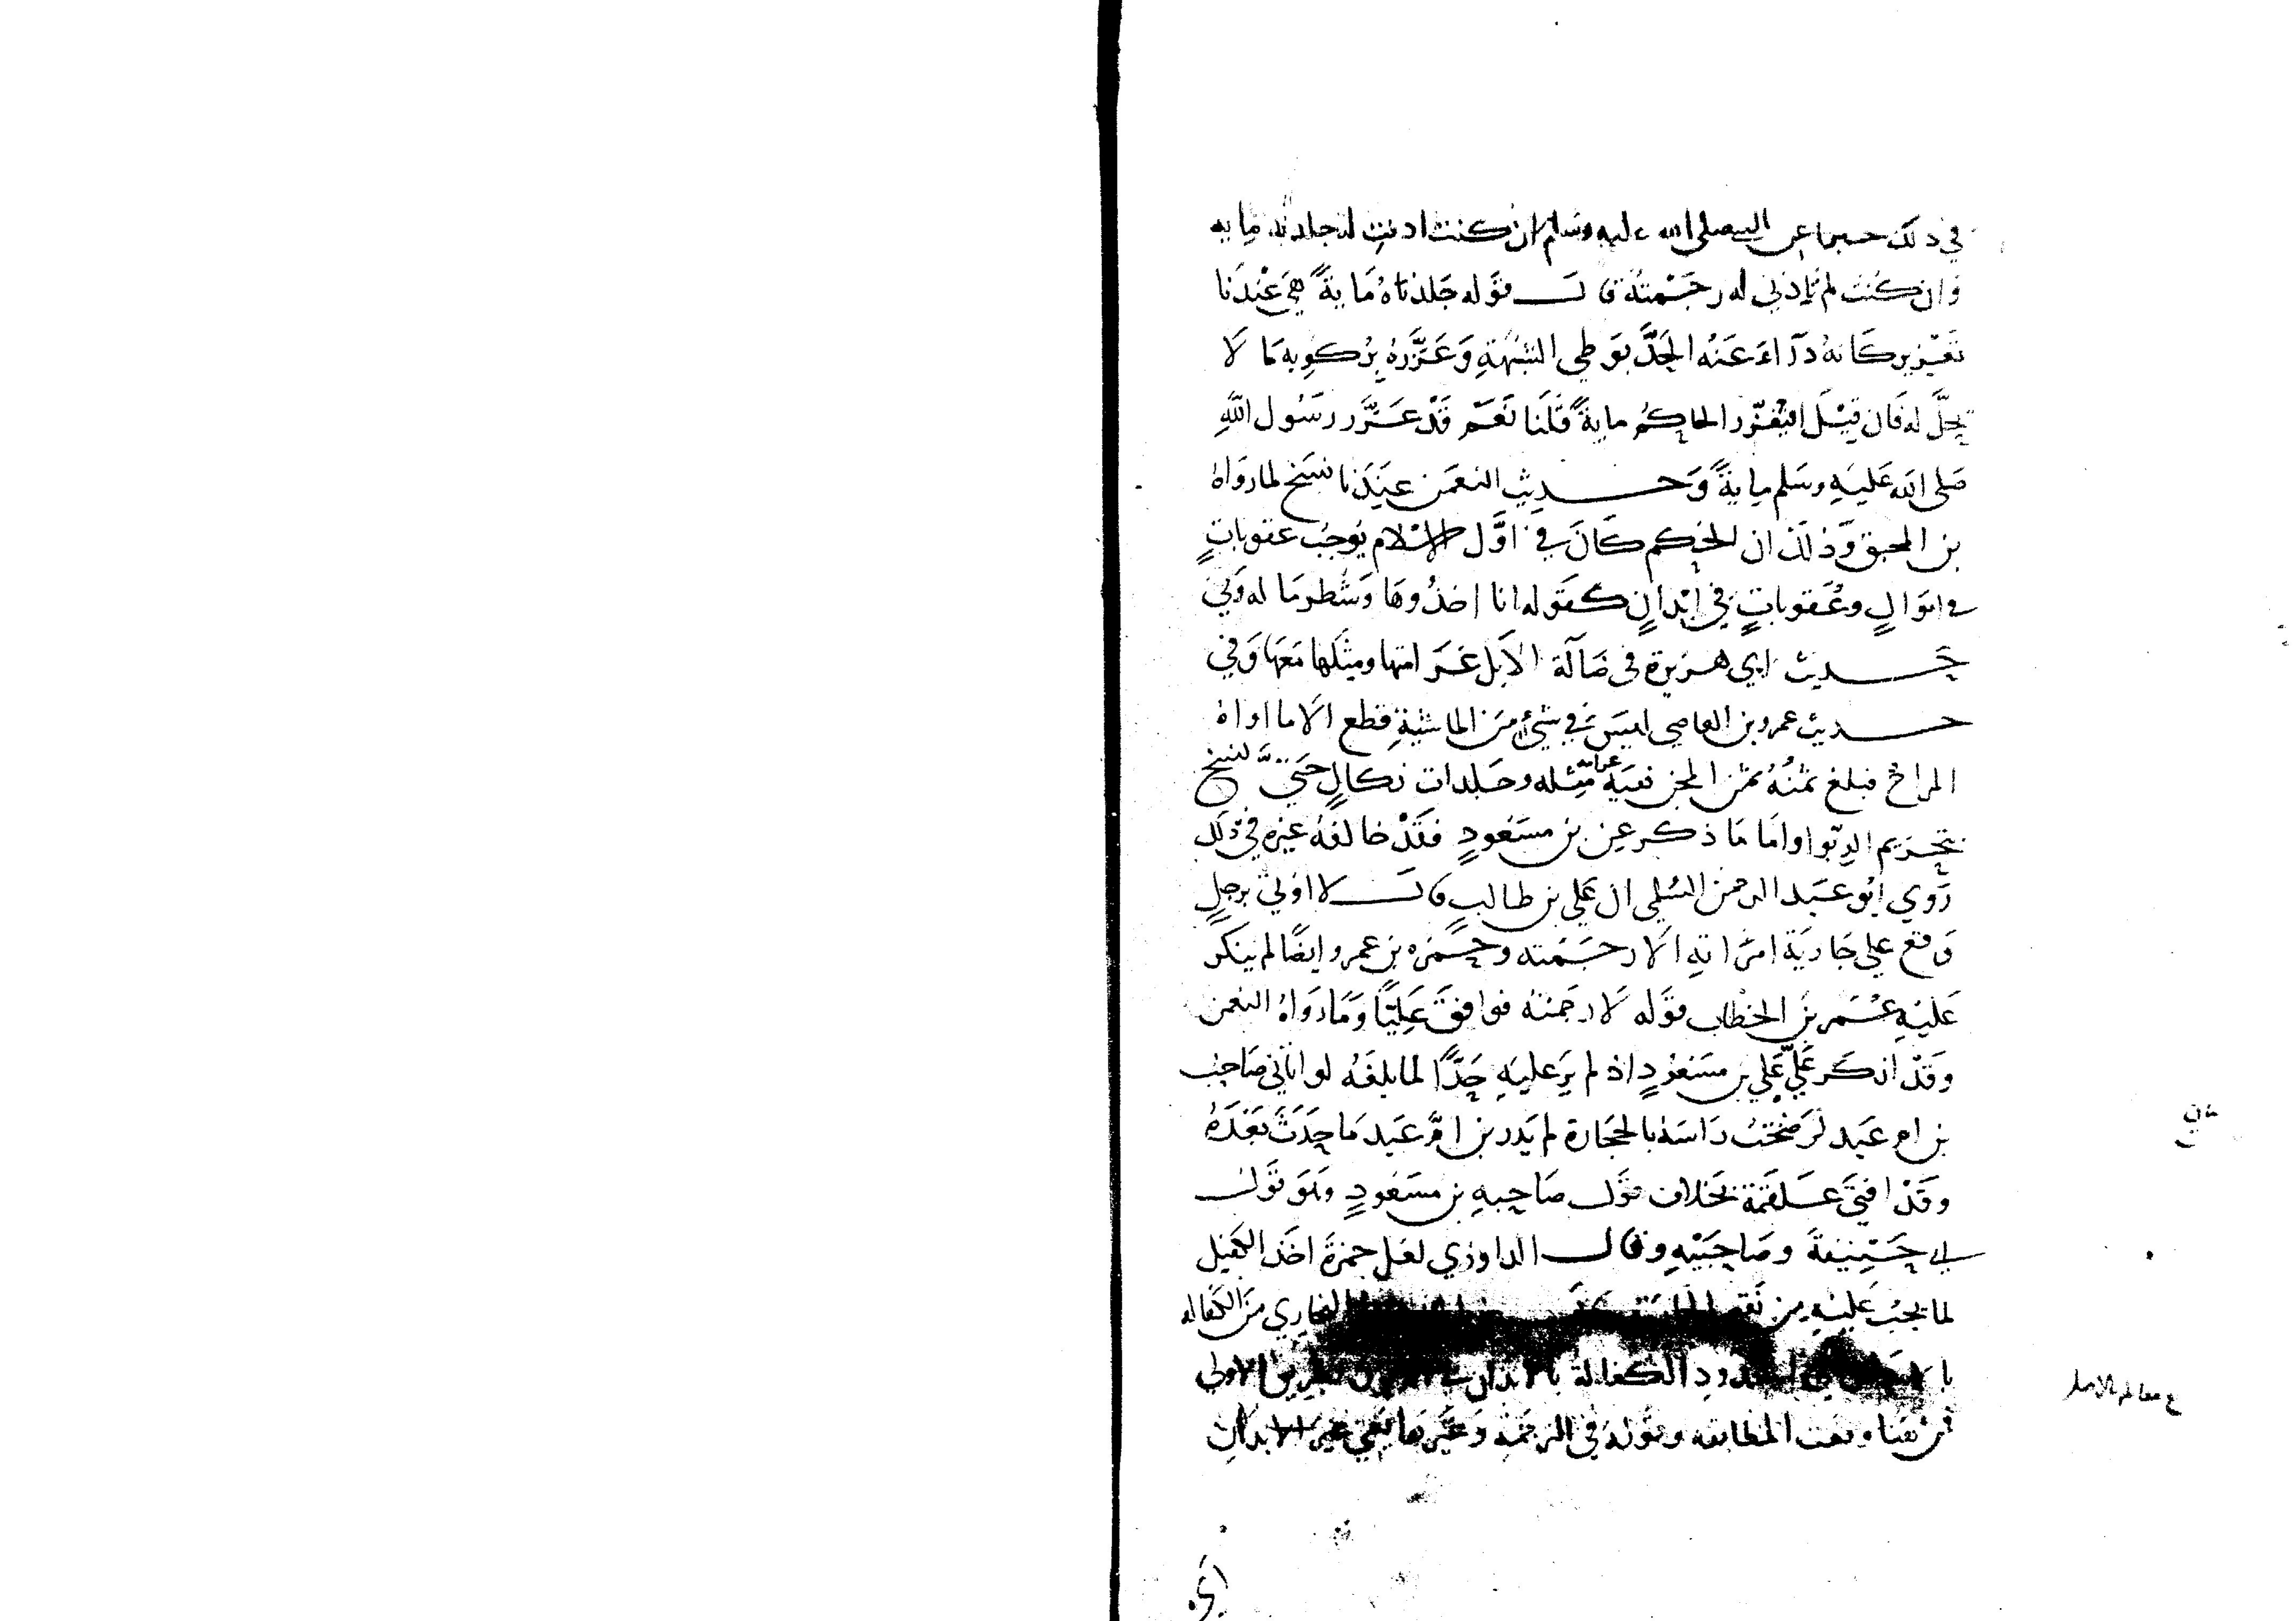 في ذلك خبرا عن النبي صلى الله عليه وسلم ان كنت اذنتِ له جلدته ماية
وَان كنت لم تاذني له رجَمْتهُ قال قوَله جَلدناهُ مَايةً هيَ عنْدَنا
تعَزير كَانهُ دَرَاءَ عَنْه الحَدَّ بوَطي الشبْهَةِ وَعَزَّرهُ برُكوبه مَا لَا
يحلَّ له فَان قيْلَ افيُعزّر الحاكمُ مايةً قلنَا نَعَم قَدْ عَزَّر رسُول اللَّهِ
صَلى الله عَليهِ وسَلم مايةً وَحديث النعمَن عنَدَنا نسَخ لما روَاهُ
بن المحبق وَذلكَ ان الحكم كَانَ في اوَّل الاسْلام يُوجبُ عقوباتٍ
في اموَالٍ وعُقوباتٍ في ابْدانٍ كقوَله انا اخذُوهَا وَشطر مَا له وَفي
حَديث ابي هرَيرة في ضَآلّة الاَبل غرَامتها ومثلها مَعهَا وَفي
حديث عمرو بن العاصي ليسَ في شيْءٍ منَ الماشيةِ قطع الا ما اواهُ
المراحُ فبلغ ثمنُهُ ثمَن المجن ففيَه غرامة مثله وجَلدات نكالٍ حَتَّى نسخ
بتحريم الرِّبوا وَامَا مَا ذكر عن بن مسَعُودٍ فقَدْ خالفهُ غيره في ذلك
رَوي ابُو عبَد الرحمن السُلمي ان عَلي بن طالبٍ قال لا اوتي برجلٍ
وَقع علي جَاريَة امرَاتهِ اَلا رجَمْته وحمزه بن عمرو ايضًا لم ينكر
عَليْهِ عُمَر بن الخطاب قوَله لَارجَمْتهُ فوافقَ عَليًّا وَمَا روَاهُ النعمن
وَقدْ انكَر عَليٌّ عَلي بن مسَعُودٍ اذ لم يَر عليَهِ حَدًّا لما بلغهُ لو اتاني صَاحبُ
بن ام عَبد لرَضَخْتُ رَاسَهُ بالحجَارة لم يَدر بن امِّ عَبد مَا حَدَثَ بَعْدَهُ
وقَدْ افتيَ عَلقَمة بخلاف قوَل صَاحبهِ بن مسَعُودٍ وهَوَ قوَل
ابي حَنِيفةَ وصَاحبَيْهِ وقال الداوزي لعَل حمزةَ اخَذ الكفيل
لما يجبُ عَليْهِ من البخاري منَ الكفاله
الكفالة بالابدان الاولي
وقعَت المطابقه وقوَلهُ في الترجَمَة وَغَيرهَا يعَني غيرَ الابدَان